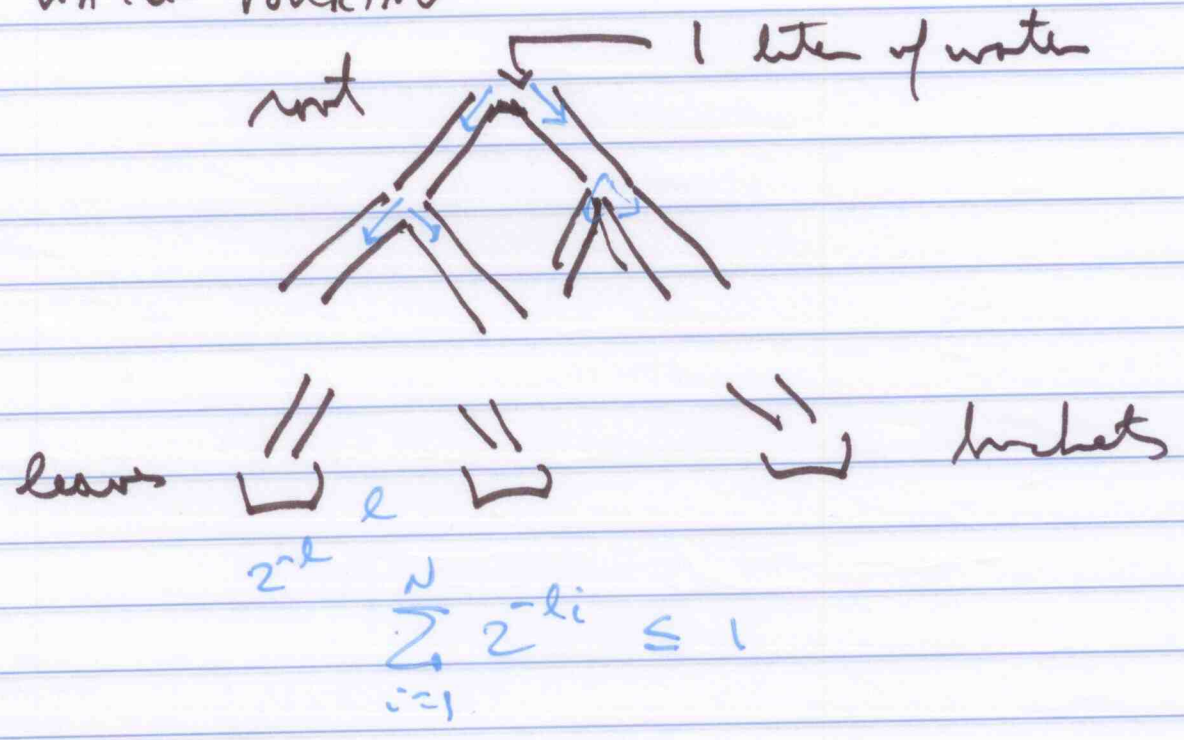 1 liter of water
root
leaves buckets
l
2^{-l}
\sum_{i=1}^{N} 2^{-l_i} ≤ 1